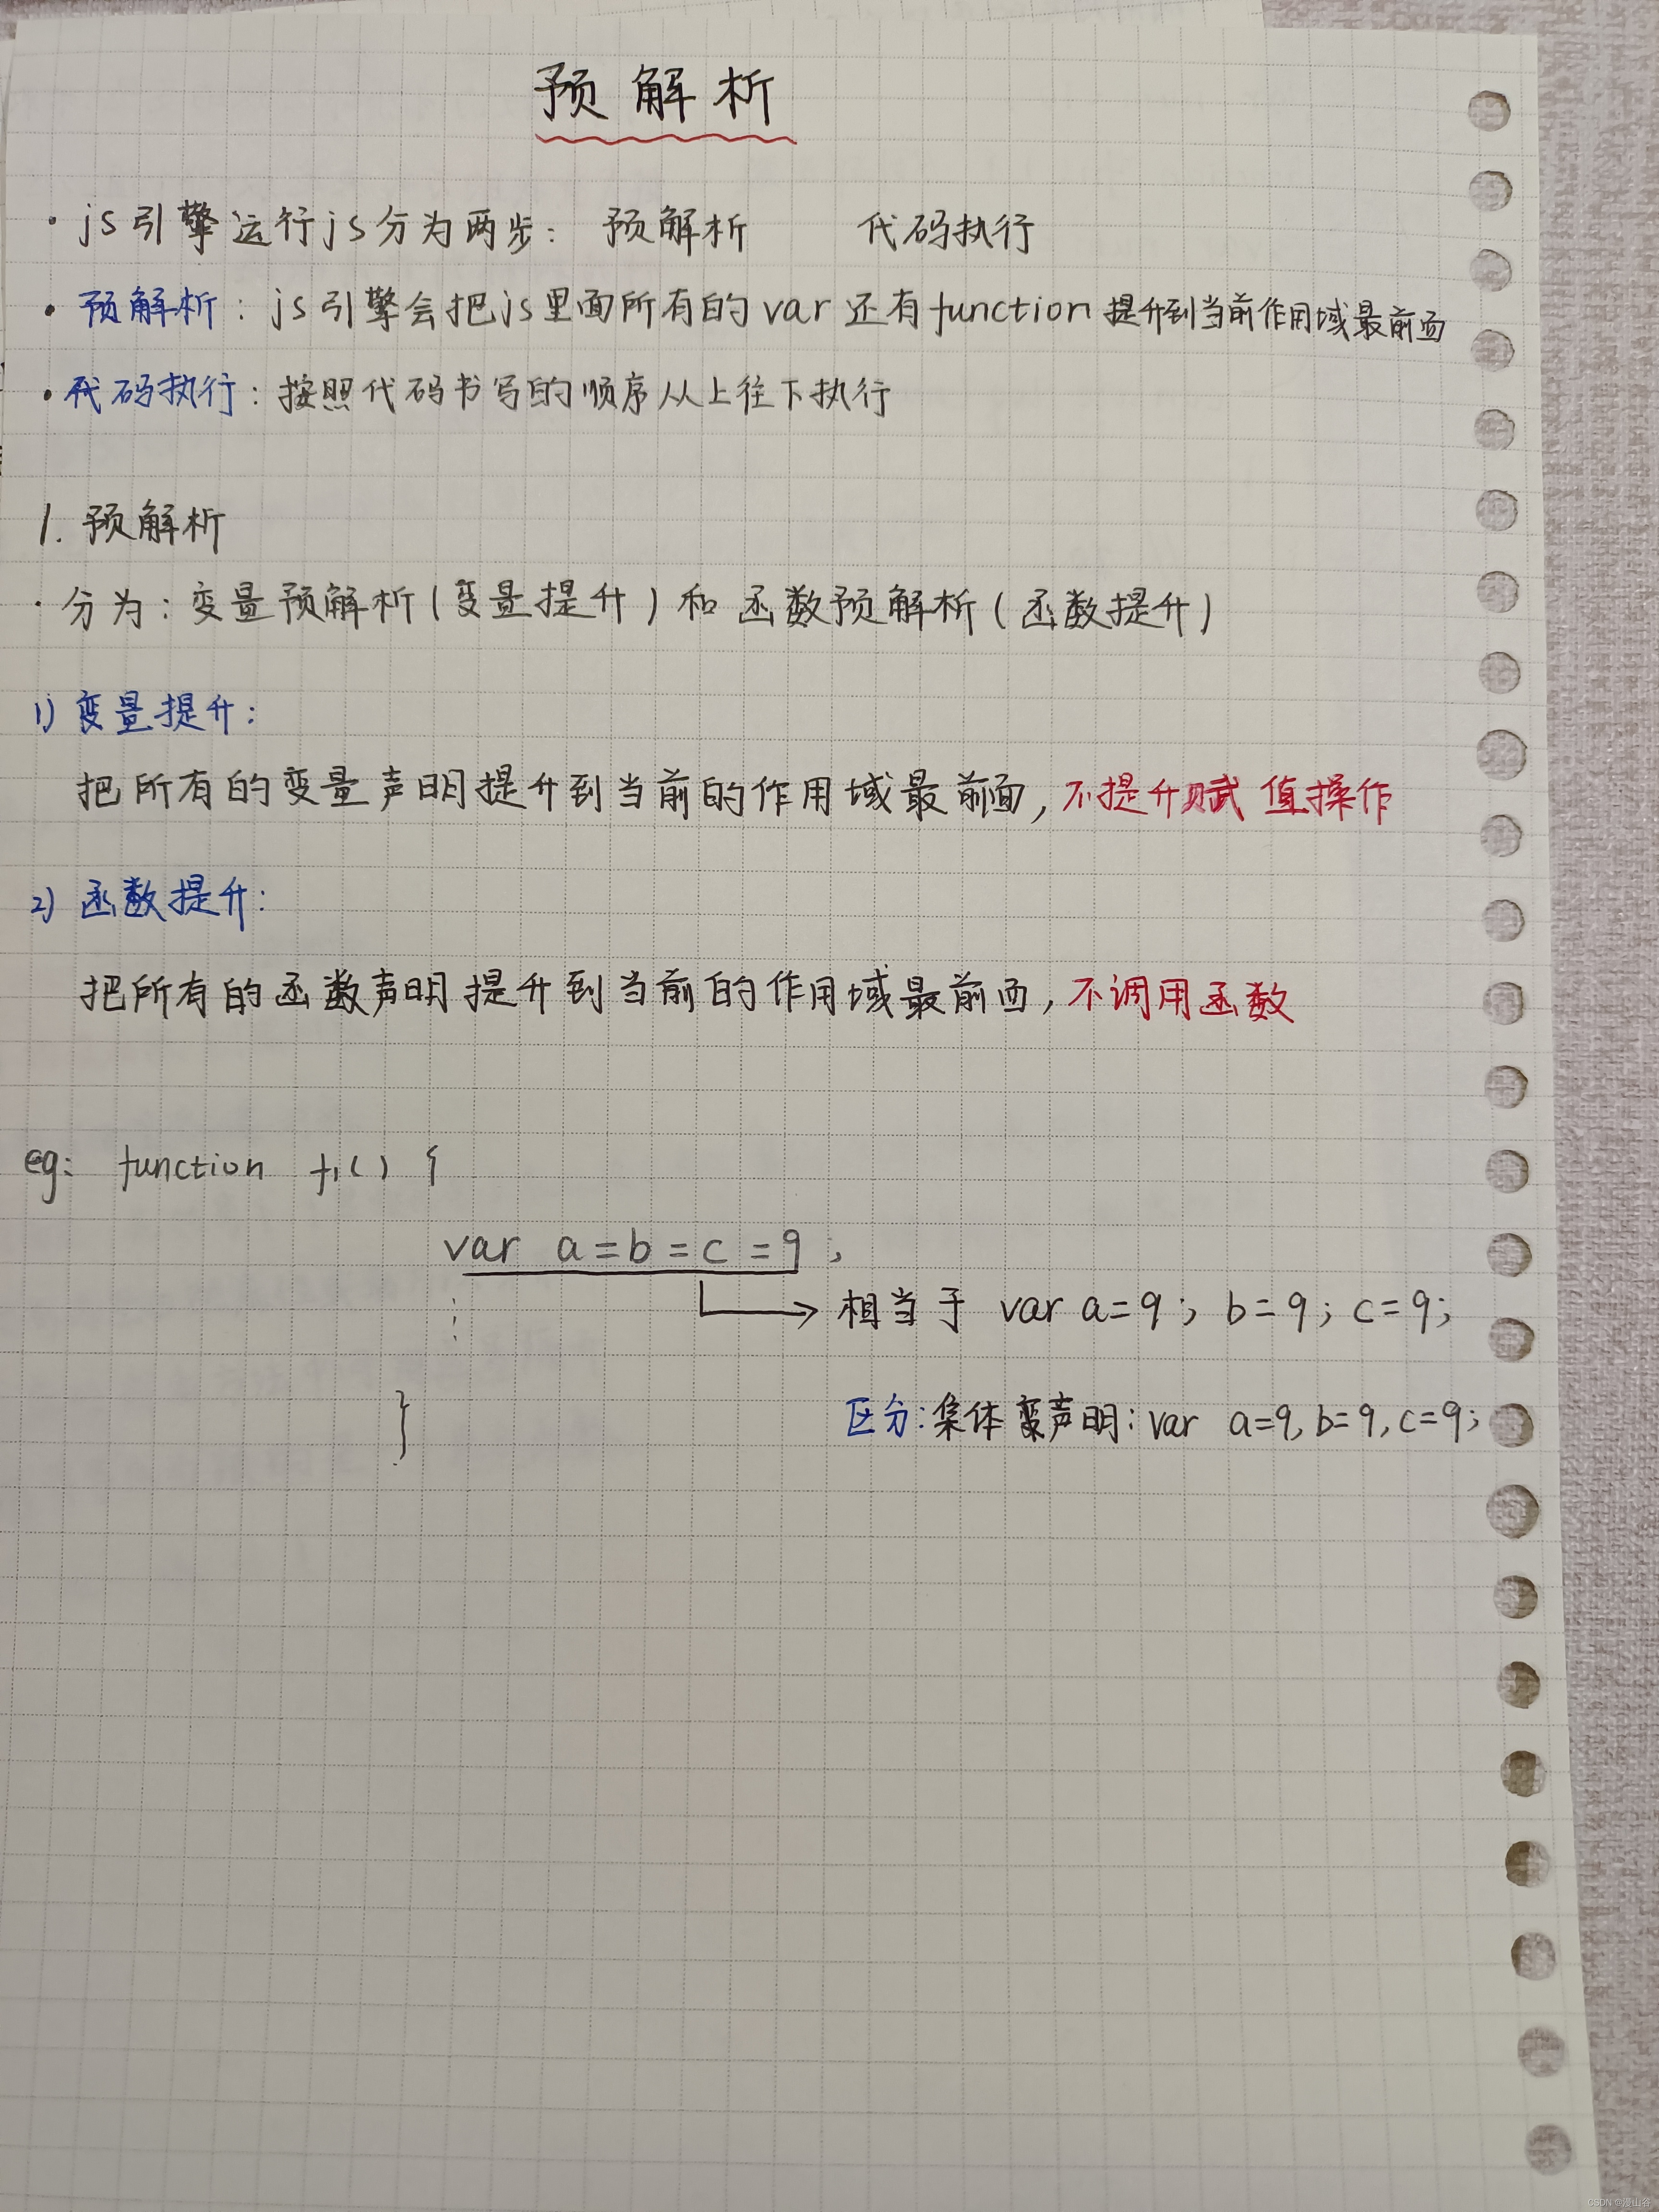 预解析
· js引擎运行js分为两步: 预解析 代码执行
· 预解析: js引擎会把js里面所有的var还有function提升到当前作用域最前面
· 代码执行: 按照代码书写的顺序从上往下执行
1. 预解析
· 分为: 变量预解析(变量提升)和函数预解析(函数提升)
1) 变量提升:
把所有的变量声明提升到当前的作用域最前面,不提升赋值操作
2) 函数提升:
把所有的函数声明提升到当前的作用域最前面,不调用函数
eg: function f1() {
var a=b=c=9;
相当于 var a=9; b=9; c=9;
}
区分:集体声明: var a=9, b=9, c=9;
CSDN @漫山谷